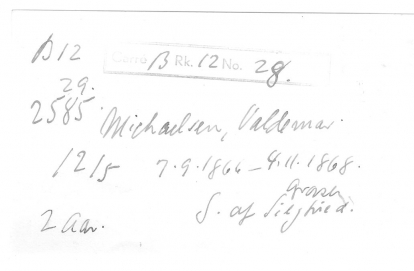 B 12 Carré B Rk. 12 No. 28.
29.
2585. Michaelsen, Valdemar.
12/5 7.9.1866 - 4.11.1868.
2 Aar. S. af Siegfried.